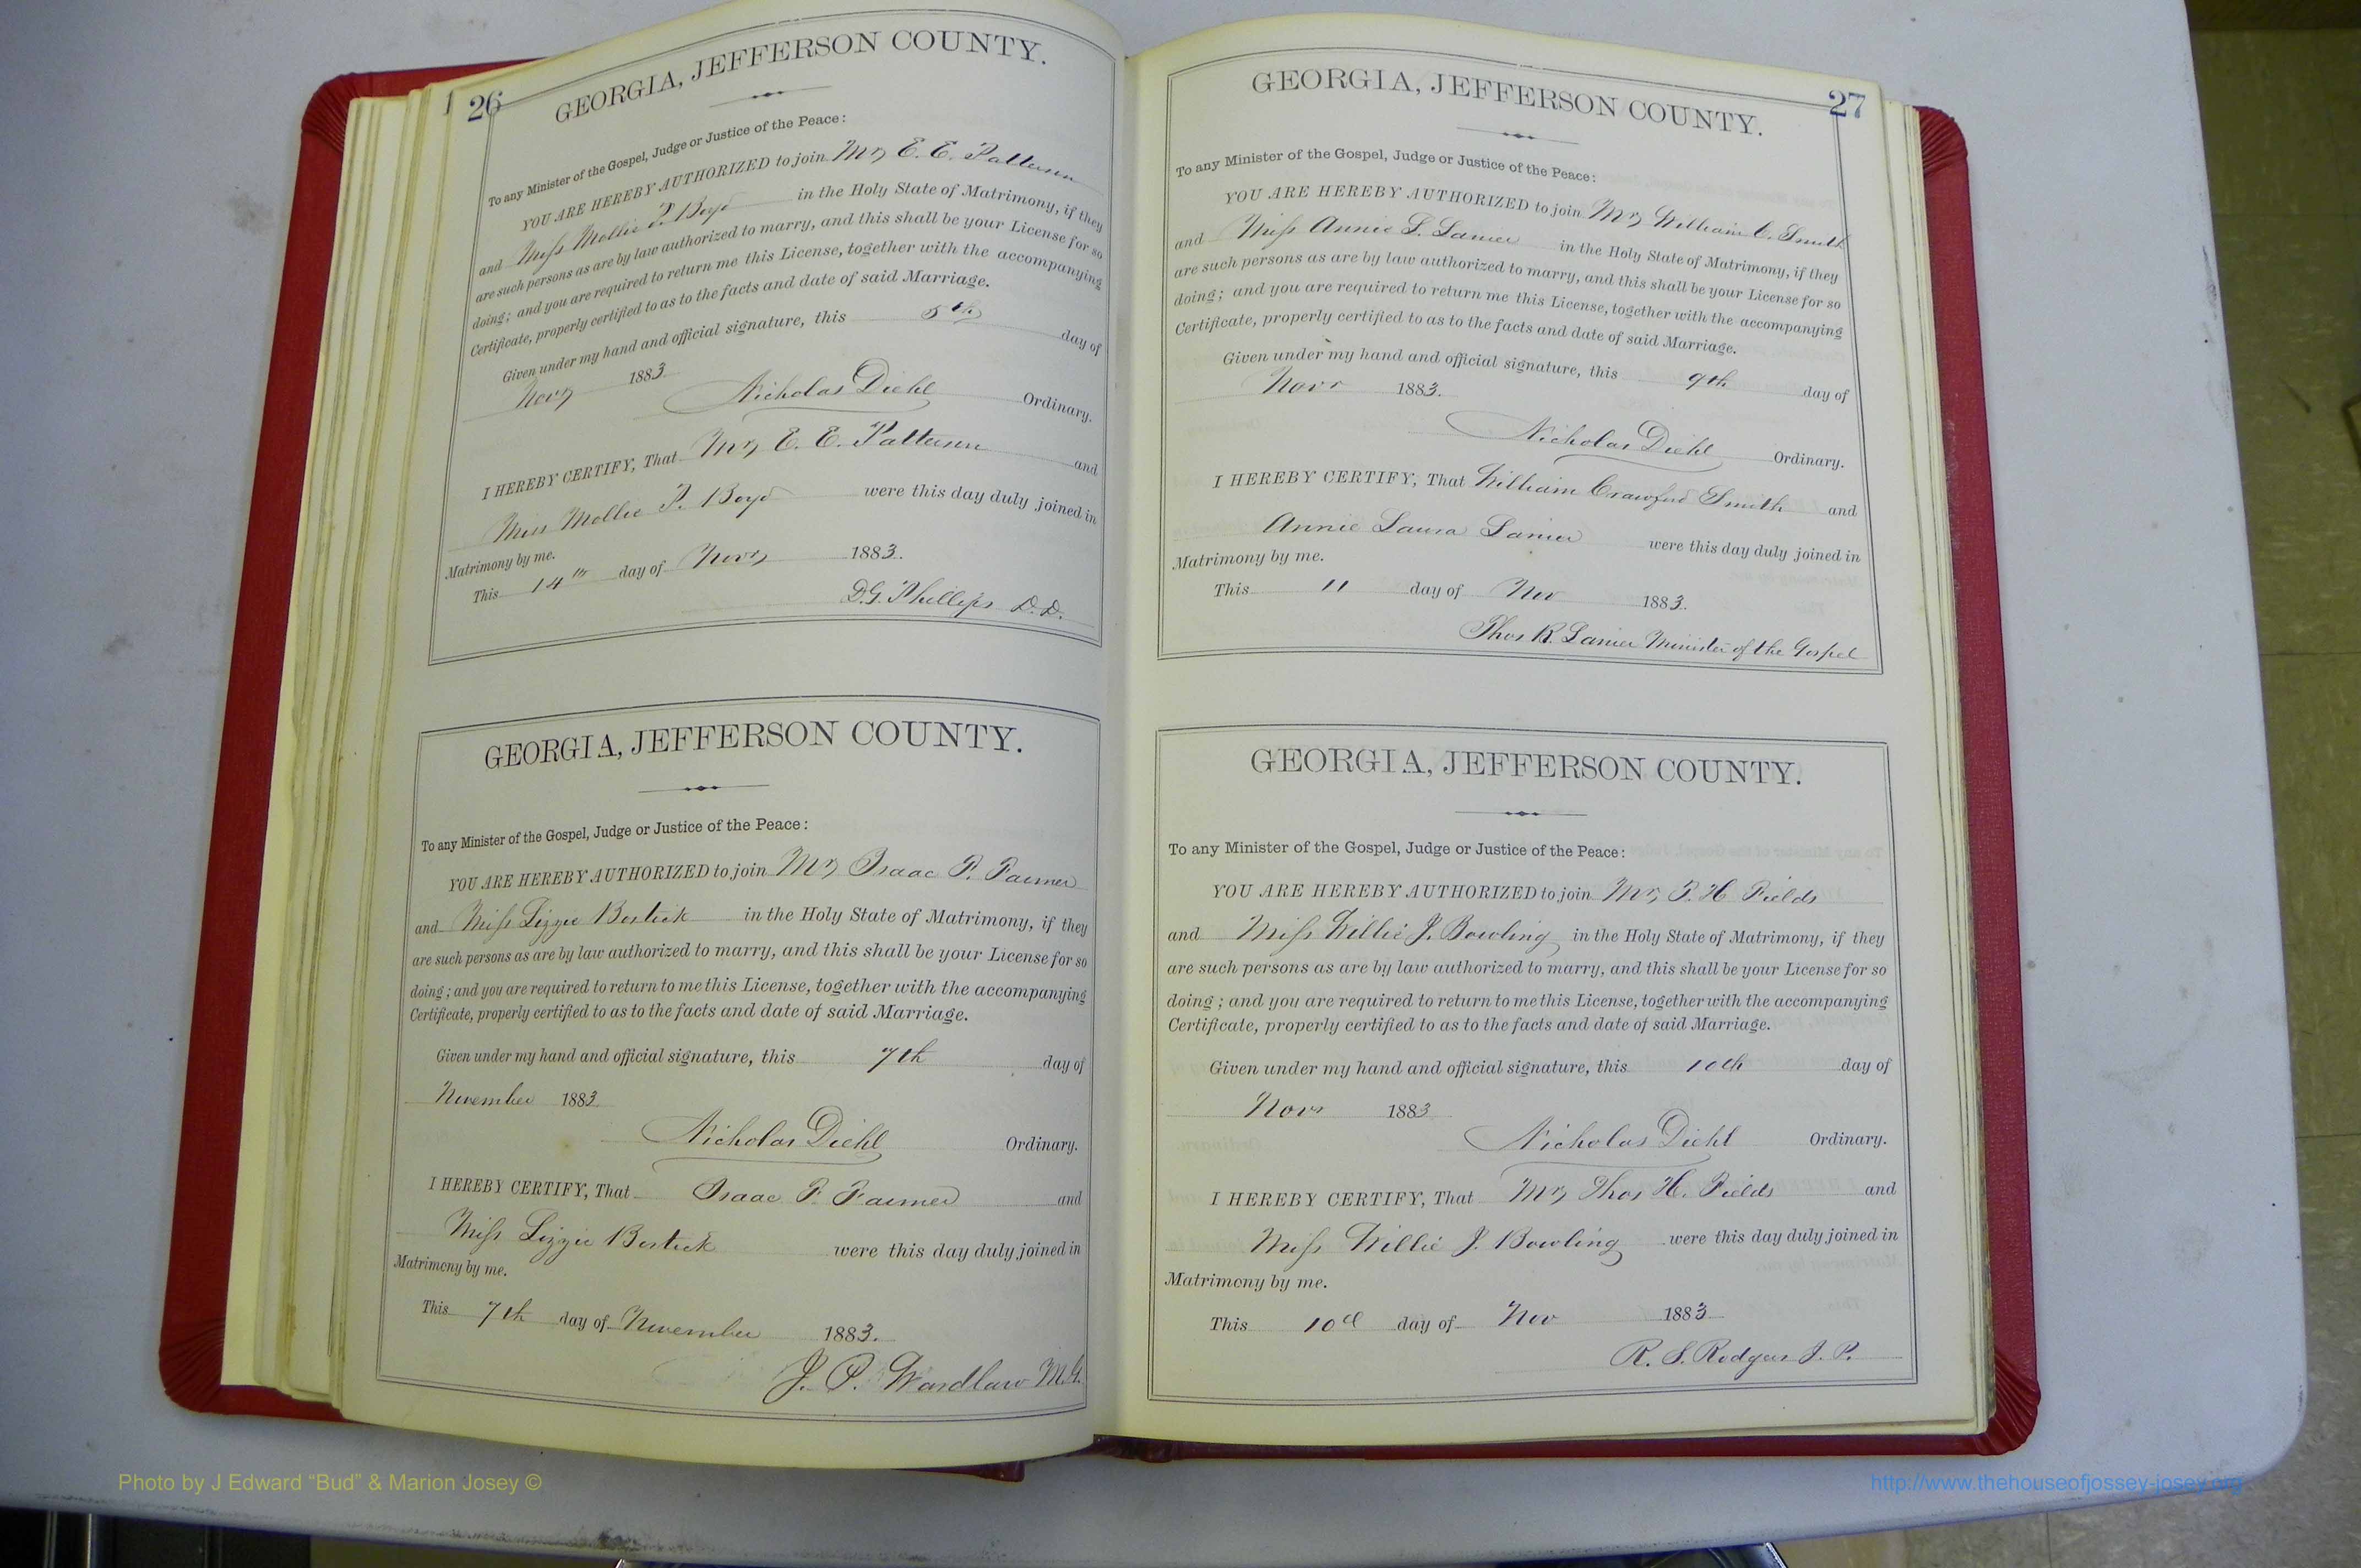 26
GEORGIA, JEFFERSON COUNTY.
To any Minister of the Gospel, Judge or Justice of the Peace:
YOU ARE HEREBY AUTHORIZED to join Mr, E. E. Patterson
and Miss Mollie P. Boyd in the Holy State of Matrimony, if they
are such persons as are by law authorized to marry, and this shall be your License for so
doing; and you are required to return me this License, together with the accompanying
Certificate, properly certified to as to the facts and date of said Marriage.
Given under my hand and official signature, this 5th day of
Nov, 1883.
Nicholas Diehl Ordinary.
I HEREBY CERTIFY, That Mr, E. E. Patterson and
Miss Mollie P. Boyd were this day duly joined in
Matrimony by me.
This 14th day of Nov, 1883.
D.G. Phillips D.D.
GEORGIA, JEFFERSON COUNTY.
To any Minister of the Gospel, Judge or Justice of the Peace:
YOU ARE HEREBY AUTHORIZED to join Mr, Isaac F. Farmer
and Miss Lizzie Bostick in the Holy State of Matrimony, if they
are such persons as are by law authorized to marry, and this shall be your License for so
doing; and you are required to return to me this License, together with the accompanying
Certificate, properly certified to as to the facts and date of said Marriage.
Given under my hand and official signature, this 7th day of
November 1883
Nicholas Diehl Ordinary.
I HEREBY CERTIFY, That Isaac F. Farmer and
Miss Lizzie Bostick were this day duly joined in
Matrimony by me.
This 7th day of November 1883.
J. P. Wardlaw M.G.
27
GEORGIA, JEFFERSON COUNTY.
To any Minister of the Gospel, Judge or Justice of the Peace:
YOU ARE HEREBY AUTHORIZED to join Mr, William C. Smith
and Miss Annie L. Lanier in the Holy State of Matrimony, if they
are such persons as are by law authorized to marry, and this shall be your License for so
doing; and you are required to return me this License, together with the accompanying
Certificate, properly certified to as to the facts and date of said Marriage.
Given under my hand and official signature, this 9th day of
Novr 1883.
Nicholas Diehl Ordinary.
I HEREBY CERTIFY, That William Crawford Smith and
Annie Laura Lanier were this day duly joined in
Matrimony by me.
This 11 day of Nov 1883.
Thos R. Lanier Minister of the Gospel
GEORGIA, JEFFERSON COUNTY.
To any Minister of the Gospel, Judge or Justice of the Peace:
YOU ARE HEREBY AUTHORIZED to join Mr, T. H. Fields
and Miss Willie J. Bowling in the Holy State of Matrimony, if they
are such persons as are by law authorized to marry, and this shall be your License for so
doing; and you are required to return to me this License, together with the accompanying
Certificate, properly certified to as to the facts and date of said Marriage.
Given under my hand and official signature, this 10th day of
Novr 1883
Nicholas Diehl Ordinary.
I HEREBY CERTIFY, That Mr, Thos H. Fields and
Miss Willie J. Bowling were this day duly joined in
Matrimony by me.
This 10th day of Nov 1883
R. S. Rodgers J. P.
Photo by J Edward “Bud” & Marion Josey ©
http://www.thehouseofjossey-josey.org